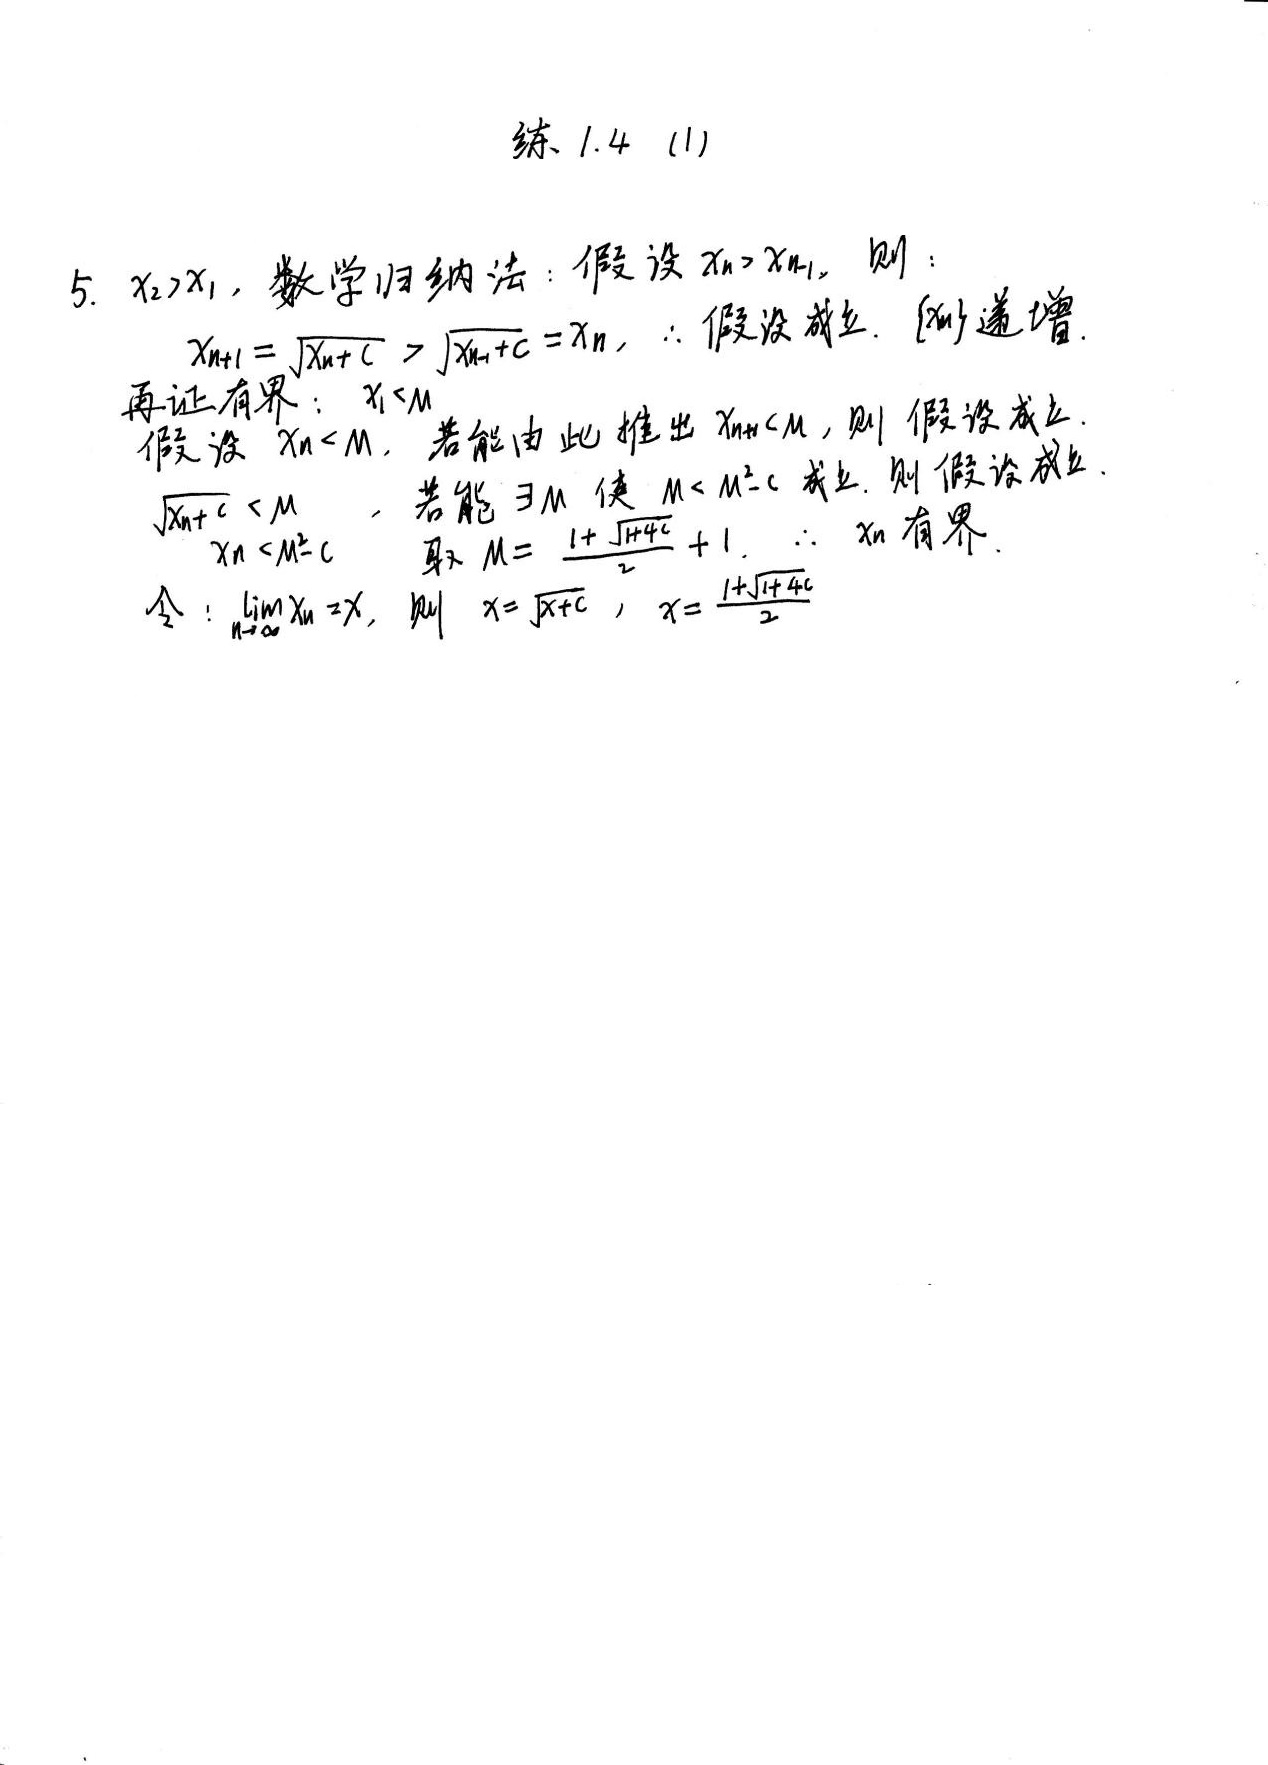 练 1.4 (1)
5. x₂>x₁, 数学归纳法: 假设 xₙ>xₙ₋₁, 则:
xₙ₊₁ = √(xₙ+c) > √(xₙ₋₁+c) = xₙ, ∴ 假设成立. {xₙ}递增.
再证有界: x₁<M
假设 xₙ<M, 若能由此推出 xₙ₊₁<M, 则假设成立.
√(xₙ+c) <M , 若能∃M 使 M<M²-c 成立. 则假设成立.
xₙ <M²-c 取 M= (1+√(1+4c))/2 +1. ∴ xₙ有界.
令: lim n→∞ xₙ =x, 则 x=√(x+c) , x= (1+√(1+4c))/2